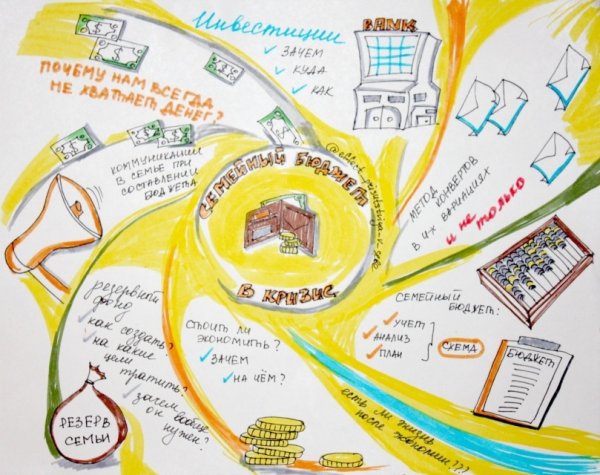 Инвестиции
ЗАЧЕМ
КУДА
КАК
BANK
ПОЧЕМУ НАМ ВСЕГДА
НЕ ХВАТАЕТ ДЕНЕГ?
КОММУНИКАЦИИ
В СЕМЬЕ ПРИ
СОСТАВЛЕНИИ
БЮДЖЕТА
СЕМЕЙНЫЙ БЮДЖЕТ
В КРИЗИС
МЕТОД КОНВЕРТОВ
В ИХ ВАРИАЦИЯХ
и не только
СЕМЕЙНЫЙ
БЮДЖЕТ:
УЧЕТ
АНАЛИЗ
ПЛАН
СХЕМА
БЮДЖЕТ
резервный
фонд
как создать?
на какие
цели
тратить?
зачем
он
нужен?
РЕЗЕРВ
СЕМЬИ
СТОИТ ЛИ
ЭКОНОМИТЬ?
ЗАЧЕМ
НА ЧЁМ?
есть ли жизнь
после экономии?))